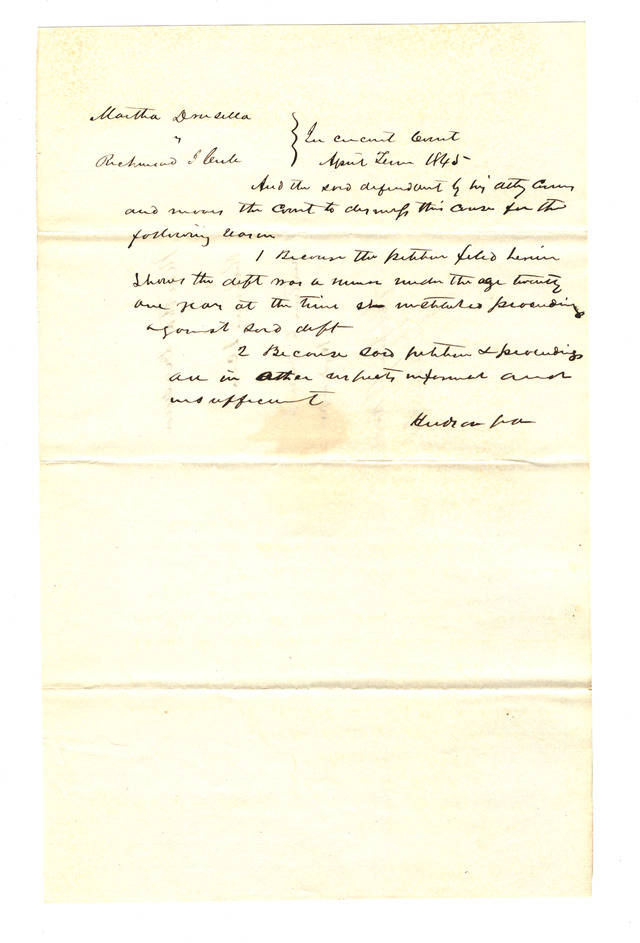 Martha Drusella
vs
Richmond J Curle
} In circuit Court
April Term 1845
And the said defendant by his atty comes
and moves the Court to dismiss this cause for the
following reason
1 Because the petition filed herein
Shows the deft was a minor under the age twenty
one year at the time she instituted proceedings
against said deft
2 Because said petition & proceedings
are in other respects informal and
insufficient
Hudson